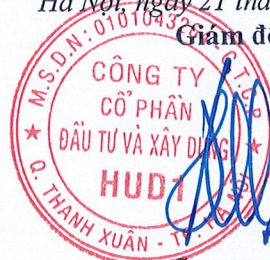 Hà Nội, ngày 21 thá
Giám đố
M.S.D.N: 01010432
C.T.C.P
CÔNG TY
CỔ PHẦN
ĐẦU TƯ VÀ XÂY DỰNG
HUD1
Q. THANH XUÂN - TP. HÀ NỘI